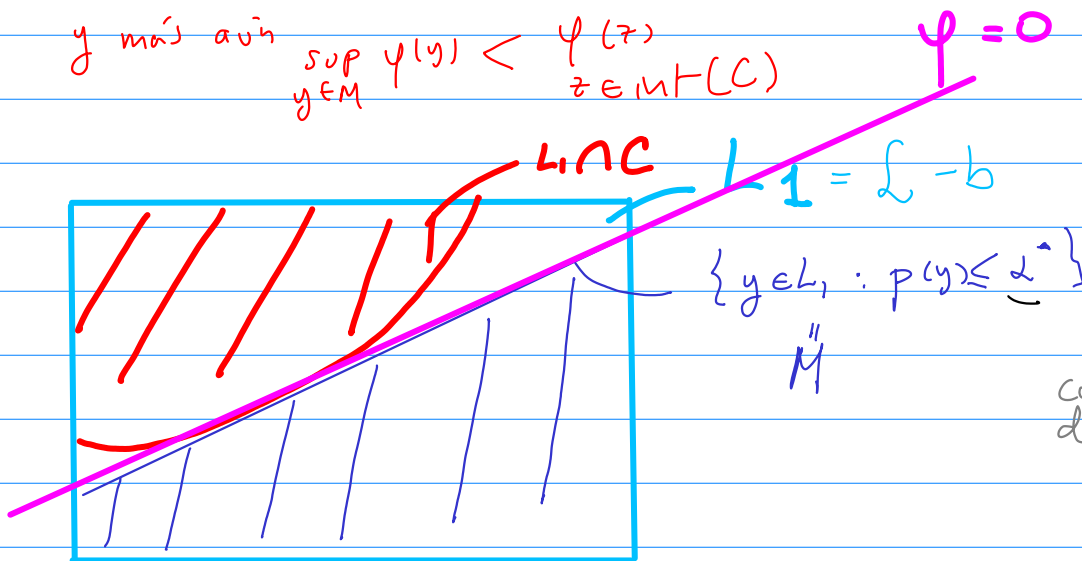 y más aún
sup φ(y) < φ(z)
y∈M z∈int(C)
φ = 0
L₁∩C
L₁ = L - b
{y∈L₁ : p(y) ≤ α^
"
M